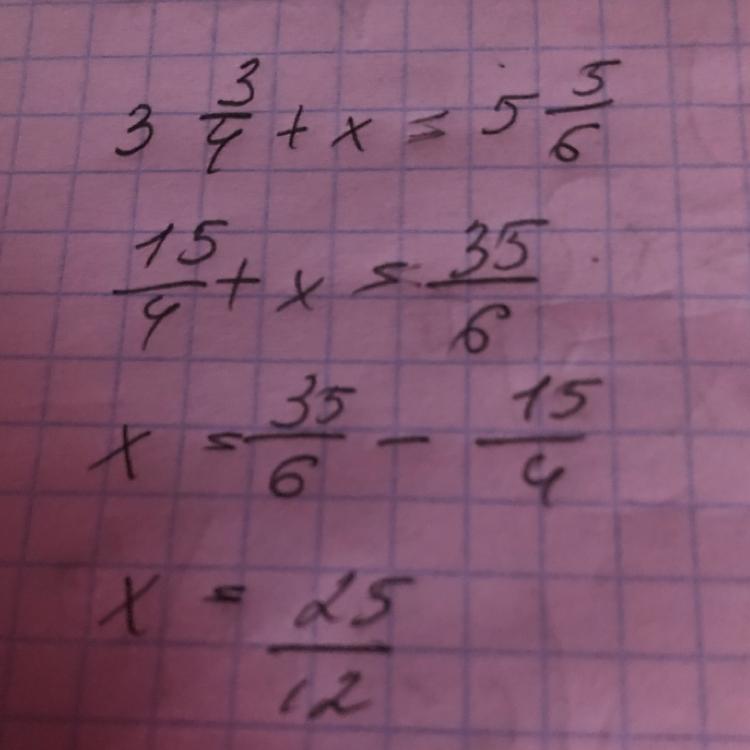 3 3/4 + x = 5 5/6
15/4 + x = 35/6
x = 35/6 - 15/4
x = 25/12